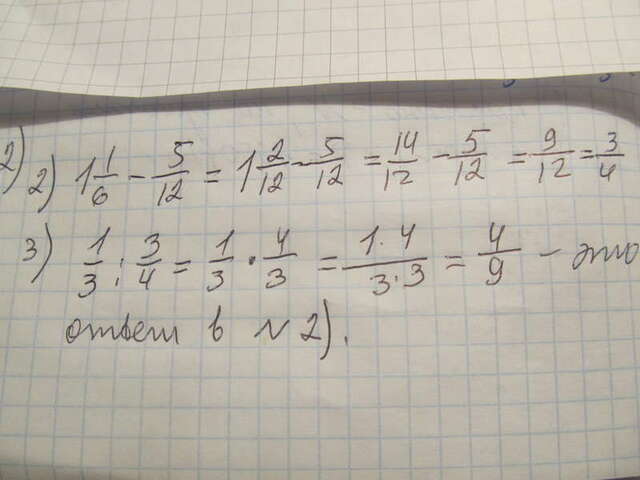 2) 2) 1 1/6 - 5/12 = 1 2/12 - 5/12 = 14/12 - 5/12 = 9/12 = 3/4
3) 1/3 : 3/4 = 1/3 · 4/3 = 1·4/3·3 = 4/9 - это
ответ в №2).